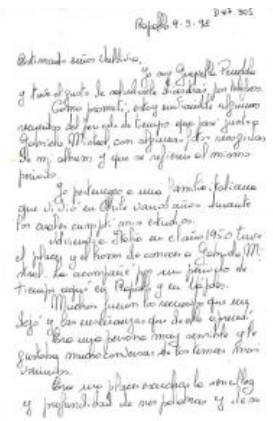 D47.305
Rapallo 9.3.95
Estimado señor Valdivia,
Yo soy Graziella
y tuve el gusto de por teléfono.
Como prometí, estoy enviando algunos
recuerdos del período de tiempo que pasé junto a
Gabriela Mistral, con algunas fotos recogidas
de mi album y que se refieren al mismo
período.
Yo pertenezco a una familia italiana
que vivió en Chile varios años durante
los cuales cumplí mis estudios.
a Italia en el año 1950 tuve
el placer y el honor de conocer a Gabriela Mi-
stral. La acompañé por un período de
tiempo aquí en Rapallo y en Nápoles.
Muchos fueron los recuerdos que me
dejó y las enseñanzas que de ella aprendí.
Era una persona muy sensible y le
gustaba mucho conversar de los temas más
variados.
Era un placer escuchar la sencillez
y profundidad de sus palabras y